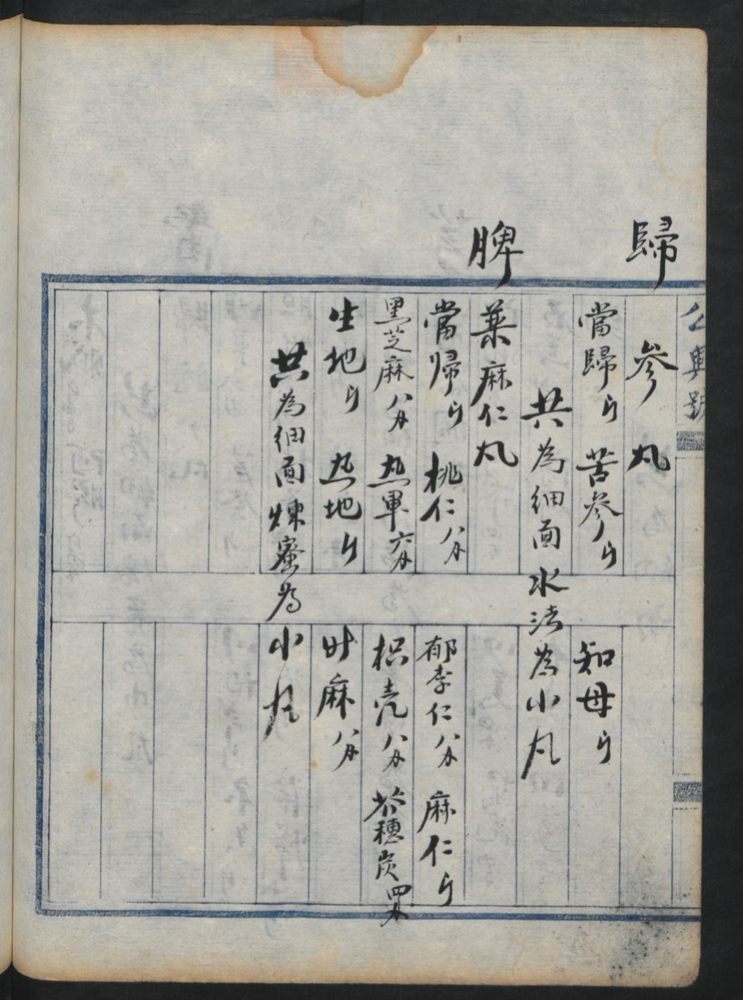 公興號
歸參丸
當歸 苦參 知母
共為細面水法為小丸
脾
麻仁丸
當歸 桃仁八分 郁李仁八分 麻仁
黑芝麻八分 軍六分 枳壳八分 穗炭四分
生地 地 麻八分
共為細面煉蜜為小丸